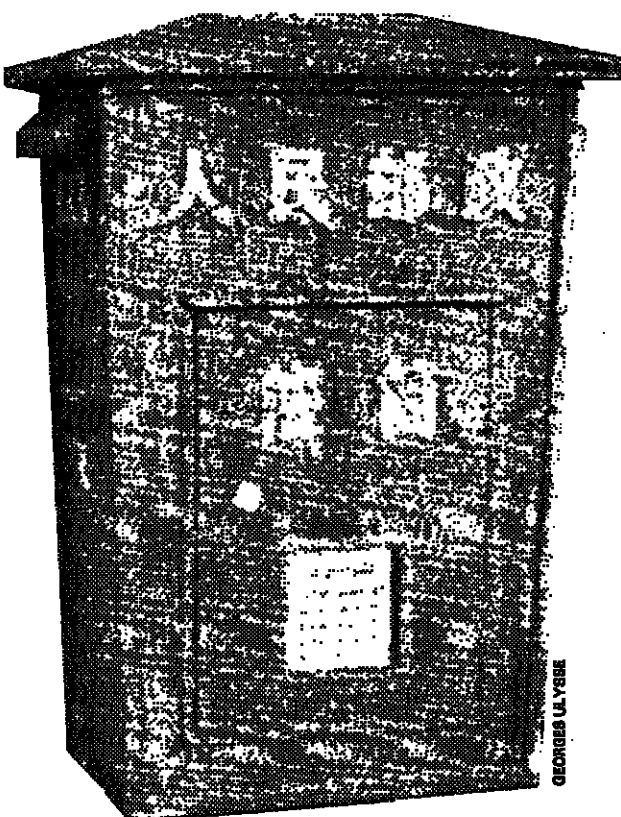 人民郵政
信箱
GEORGES ULYSSE